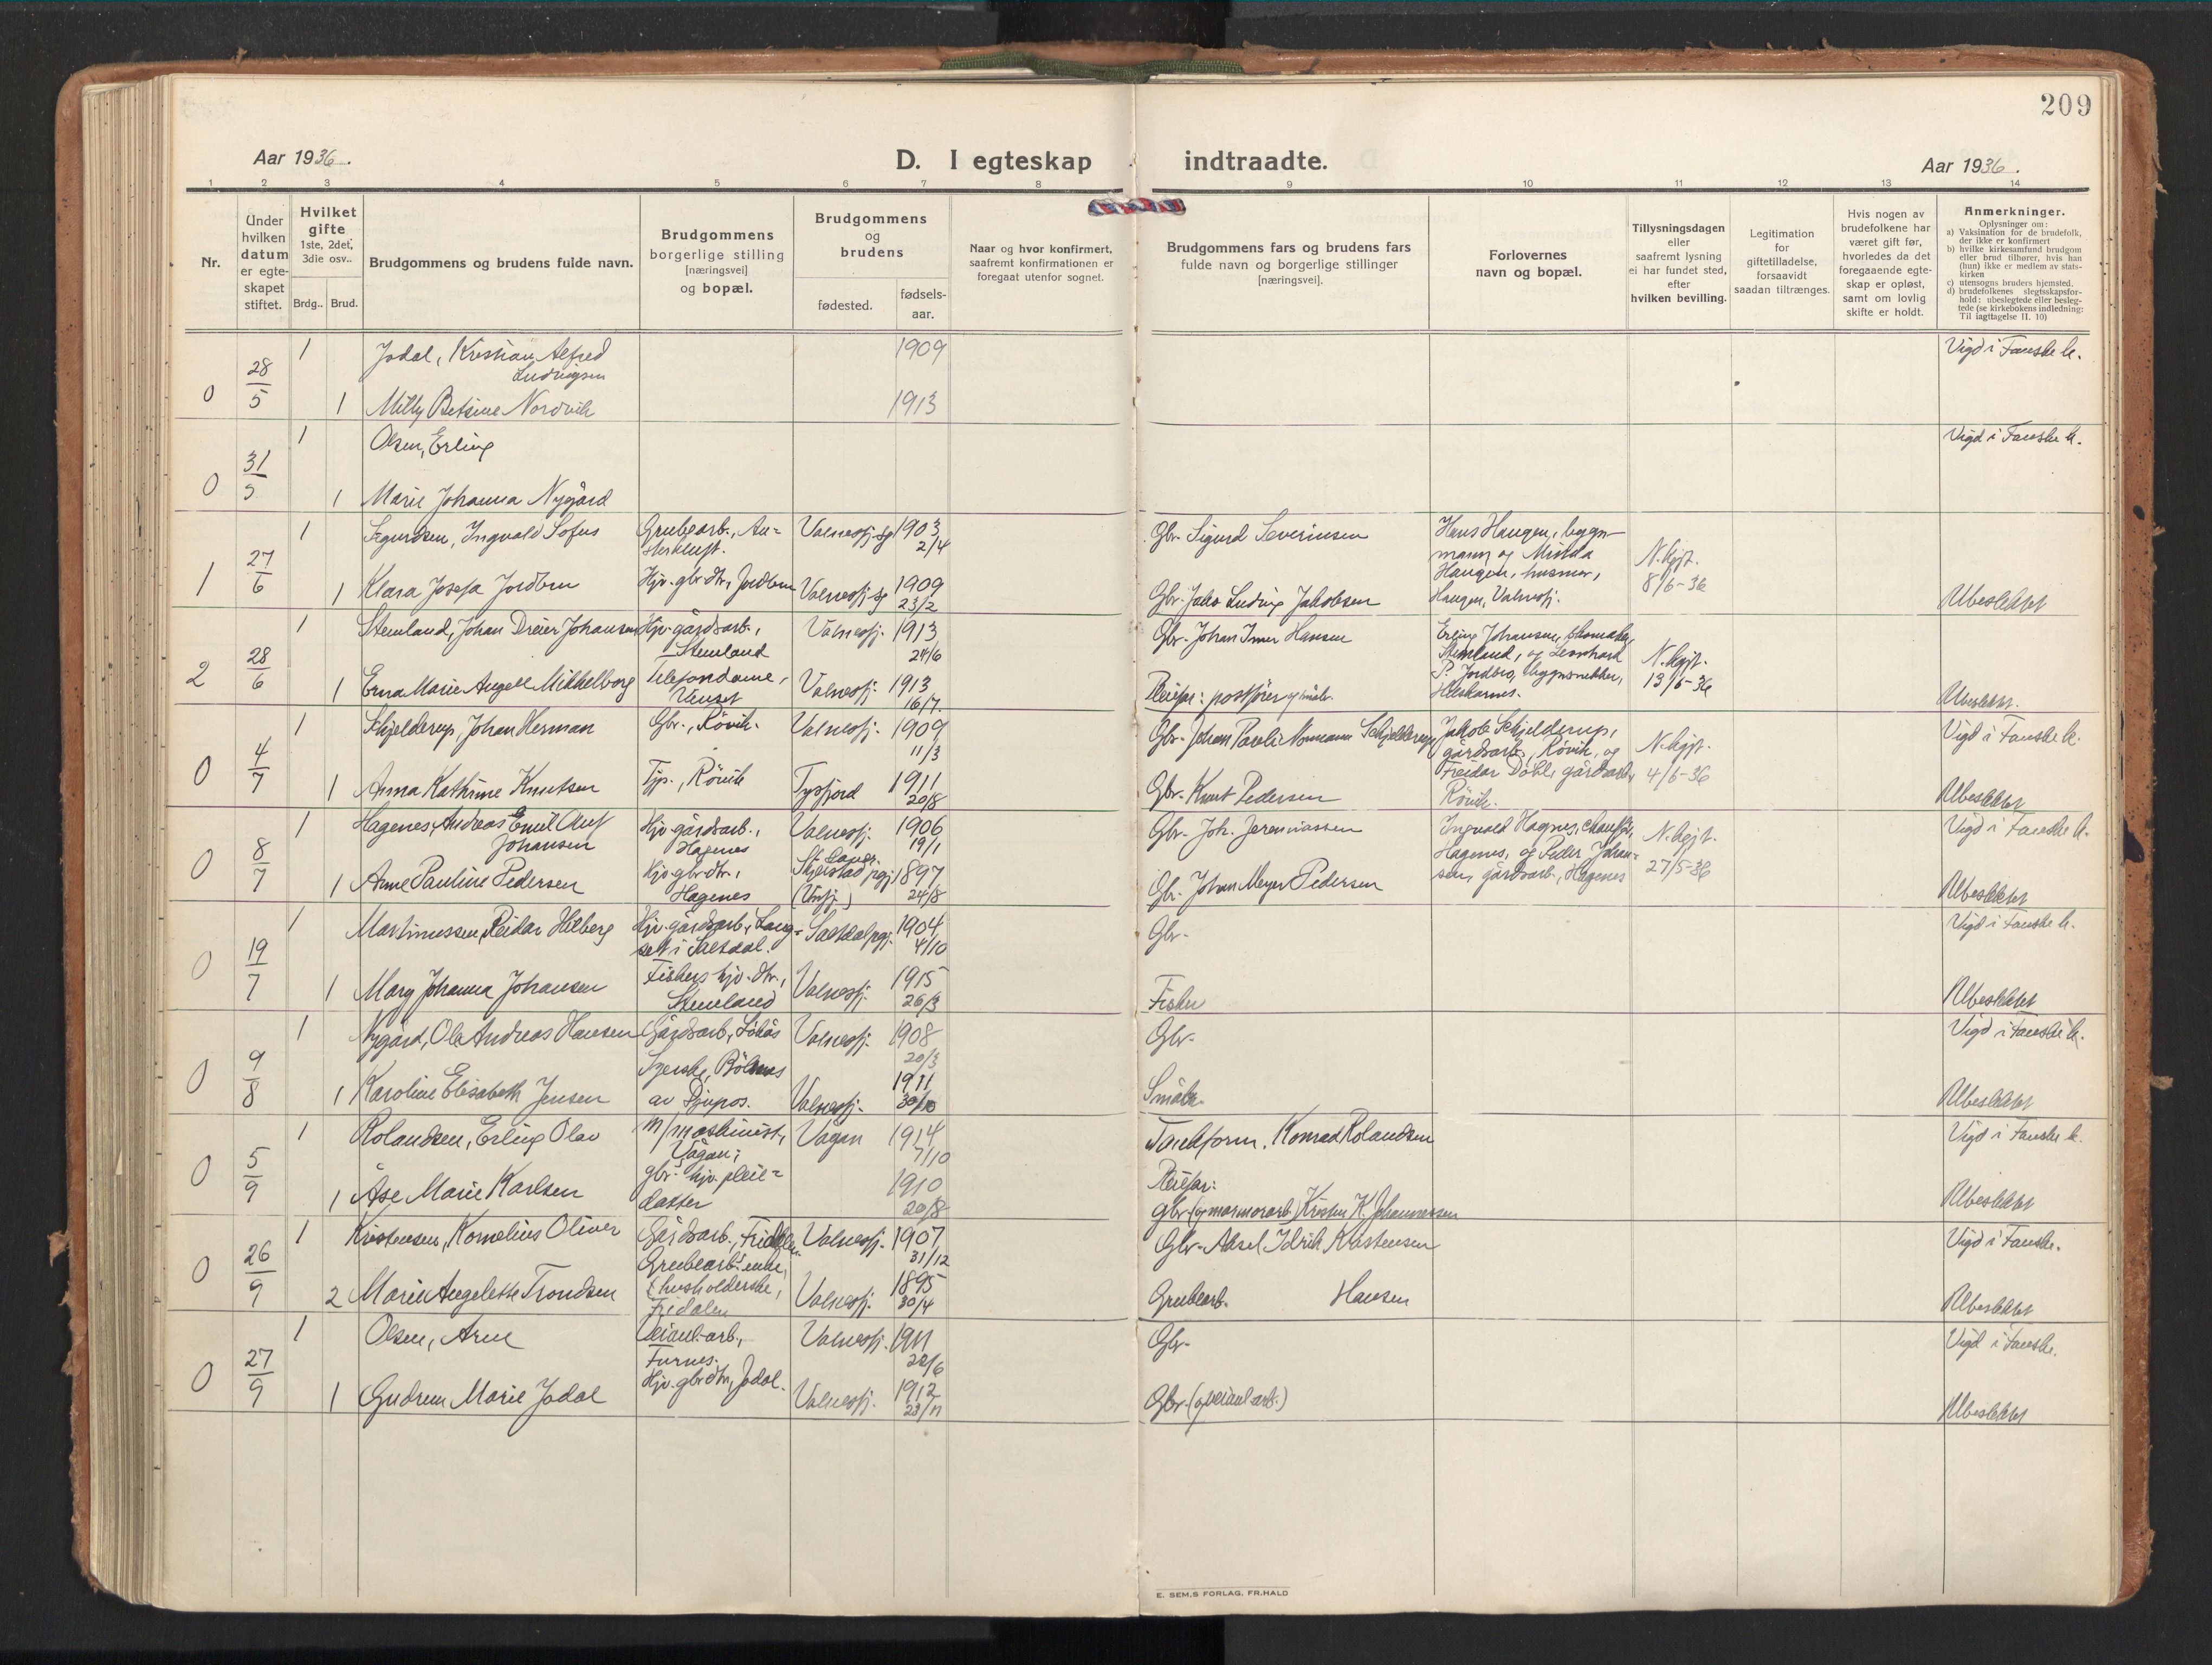 209
Aar 1936.
D. I egteskap indtraadte.
Aar 1936.
1 2 3 4 5 6 7 8 9 10 11 12 13 14
Nr.
Under
hvilken
datum
er egte-
skapet
stiftet.
Hvilket
gifte
1ste, 2det,
3die osv..
Brdg.. Brud.
Brudgommens og brudens fulde navn.
Brudgommens
borgerlige stilling
[næringsvei]
og bopæl.
Brudgommens
og
brudens
fødested.
fødsels-
aar.
Naar og hvor konfirmert,
saafremt konfirmationen er
foregaat utenfor sognet.
Brudgommens fars og brudens fars
fulde navn og borgerlige stillinger
[næringsvei].
Forlovernes
navn og bopæl.
Tillysningsdagen
eller
saafremt lysning
ei har fundet sted,
efter
hvilken bevilling.
Legitimation
for
giftetilladelse,
forsaavidt
saadan tiltrænges.
Hvis nogen av
brudefolkene har
været gift før,
hvorledes da det
foregaaende egte-
skap er opløst,
samt om lovlig
skifte er holdt.
Anmerkninger.
Oplysninger om:
a) Vaksination for de brudefolk,
der ikke er konfirmert
b) hvilke kirkesamfund brudgom
eller brud tilhører, hvis han
(hun) ikke er medlem av stats-
kirken
c) utensogns bruders hjemsted.
d) brudefolkenes slegtsskapsfor-
hold: ubeslegtede eller besleg-
tede (se kirkebokens indledning:
Til iagttagelse II. 10)
0 28/5 1 Jodal, Kristian Alfred 1909 Vigd i Fauske k.
Ludvigsen
1 Milly Betsine Nordvik 1913
0 31/5 1 Olsen, Erling Vigd i Fauske k.
1 Marie Johanna Nygård
1 27/6 1 Sigurdsen, Ingvald Sofus Grubearb., Valnesfj. sg 1903 2/4 Gbr. Sigurd Severinsen
Hans Haugen, byggn-
mann og Minda
Haugen, husmor,
Haugen, Valnesfj.
N.kgjt.
8/6-36
1 Klara Josefa Jordbru Hjv. gbr.dtr., Jordbru Valnesfj. sg 1909 23/2 Gbr. Jako Ludvig Jakobsen Ubeslektet
2 28/6 1 Stemland, Johan Dreier Johansen Hjv. gårdsarb., Stemland Valnesfj. 1913 24/6 Gbr. Johan Imer Hansen
Erling Johansen, skomaker,
Stemland, og Leonhard
P. Jordbru, byggnsnekker,
N.kgjt.
13/6-36
1 Erna Marie Angell Mikkelborg Telefondame, Valnesfj. 1913 16/7. Pleiefar: postfører og småbr. Ubeslektet.
0 4/7 1 Schjelderup, Johan Herman Gbr., Røvik. Valnesfj. 1909 11/3 Gbr. Johan Pareli Normann Schjelderup
Jakob Schjelderup,
gårdsarb., Røvik, og
Freidar Døhl, gårdsarb.,
Røvik.
N.kgjt.
4/6-36
Vigd i Fauske k.
1 Anna Kathrine Knutsen Tjp., Røvik Tysfjord 1911 20/8 Gbr. Knut Pedersen Ubeslektet
0 8/7 1 Hagenes, Andreas Emil Auf Johansen Hjv. gårdsarb., Hagenes Valnesfj. 1906 19/1 Gbr. Joh. Jeremiassen
Ingvald Hagnes, chauffør,
Hagenes, og Peder Johan-
sen, gårdsarb., Hagenes
N.kgjt.
27/5-36
Vigd i Fauske k.
1 Anne Pauline Pedersen Hjv gbr.dtr., Hagenes Skjerstad pgj. 1897 24/8 Gbr. Johan Meyer Pedersen Ubeslektet
0 19/7 1 Martinussen, Reidar Hilberg Hjv. gårdsarb., Lang-
set i Saltdal. Saltdal pgj. 1904 4/10 Gbr. Vigd i Fauske k.
1 Mary Johanna Johansen Fiskers hjv. dtr., Stemland Valnesfj. 1915 26/3 Fisker Ubeslektet
0 9/8 1 Nygård, Ole Andreas Hansen Gårdsarb., Løkås Valnesfj. 1908 20/3 Gbr. Vigd i Fauske k.
1 Karoline Elisabeth Jensen Syerske, av Djupos. Valnesfj. 1911 30/10 Småbr. Ubeslektet
0 5/9 1 Rolandsen, Erling Olav M/maskinist, Vågan; Vågan 1914 7/10 Konrad Rolandsen Vigd i Fauske k.
1 Åse Marie Karlsen gbr. hjv. pleie-
datter 1910 20/8 Pleiefar:
gbr. (og marmorarb.) Kristen K. Johannessen Ubeslektet
0 26/9 1 Kristensen, Kornelius Oliver Gårdsarb., Fridalen Valnesfj. 1907 31/12 Gbr. Aksel Idrik Kristensen Vigd i Fauske.
2 Marie Angelette Trondsen Grubearb. enke,
(husholderske,
Fridalen Valnesfj. 1895 30/4 Grubearb. Hansen Ubeslektet
0 27/9 1 Olsen, Arne Veianl.arb., Furnes. Valnesfj. 1911 22/6 Gbr. Vigd i Fauske.
1 Gudrun Marie Jodal Hjv. gbrdtr, Jodal. Valnesfj. 1912 23/11 Gbr. (og veianl.arb.) Ubeslektet
E. SEM.S FORLAG. FR.HALD